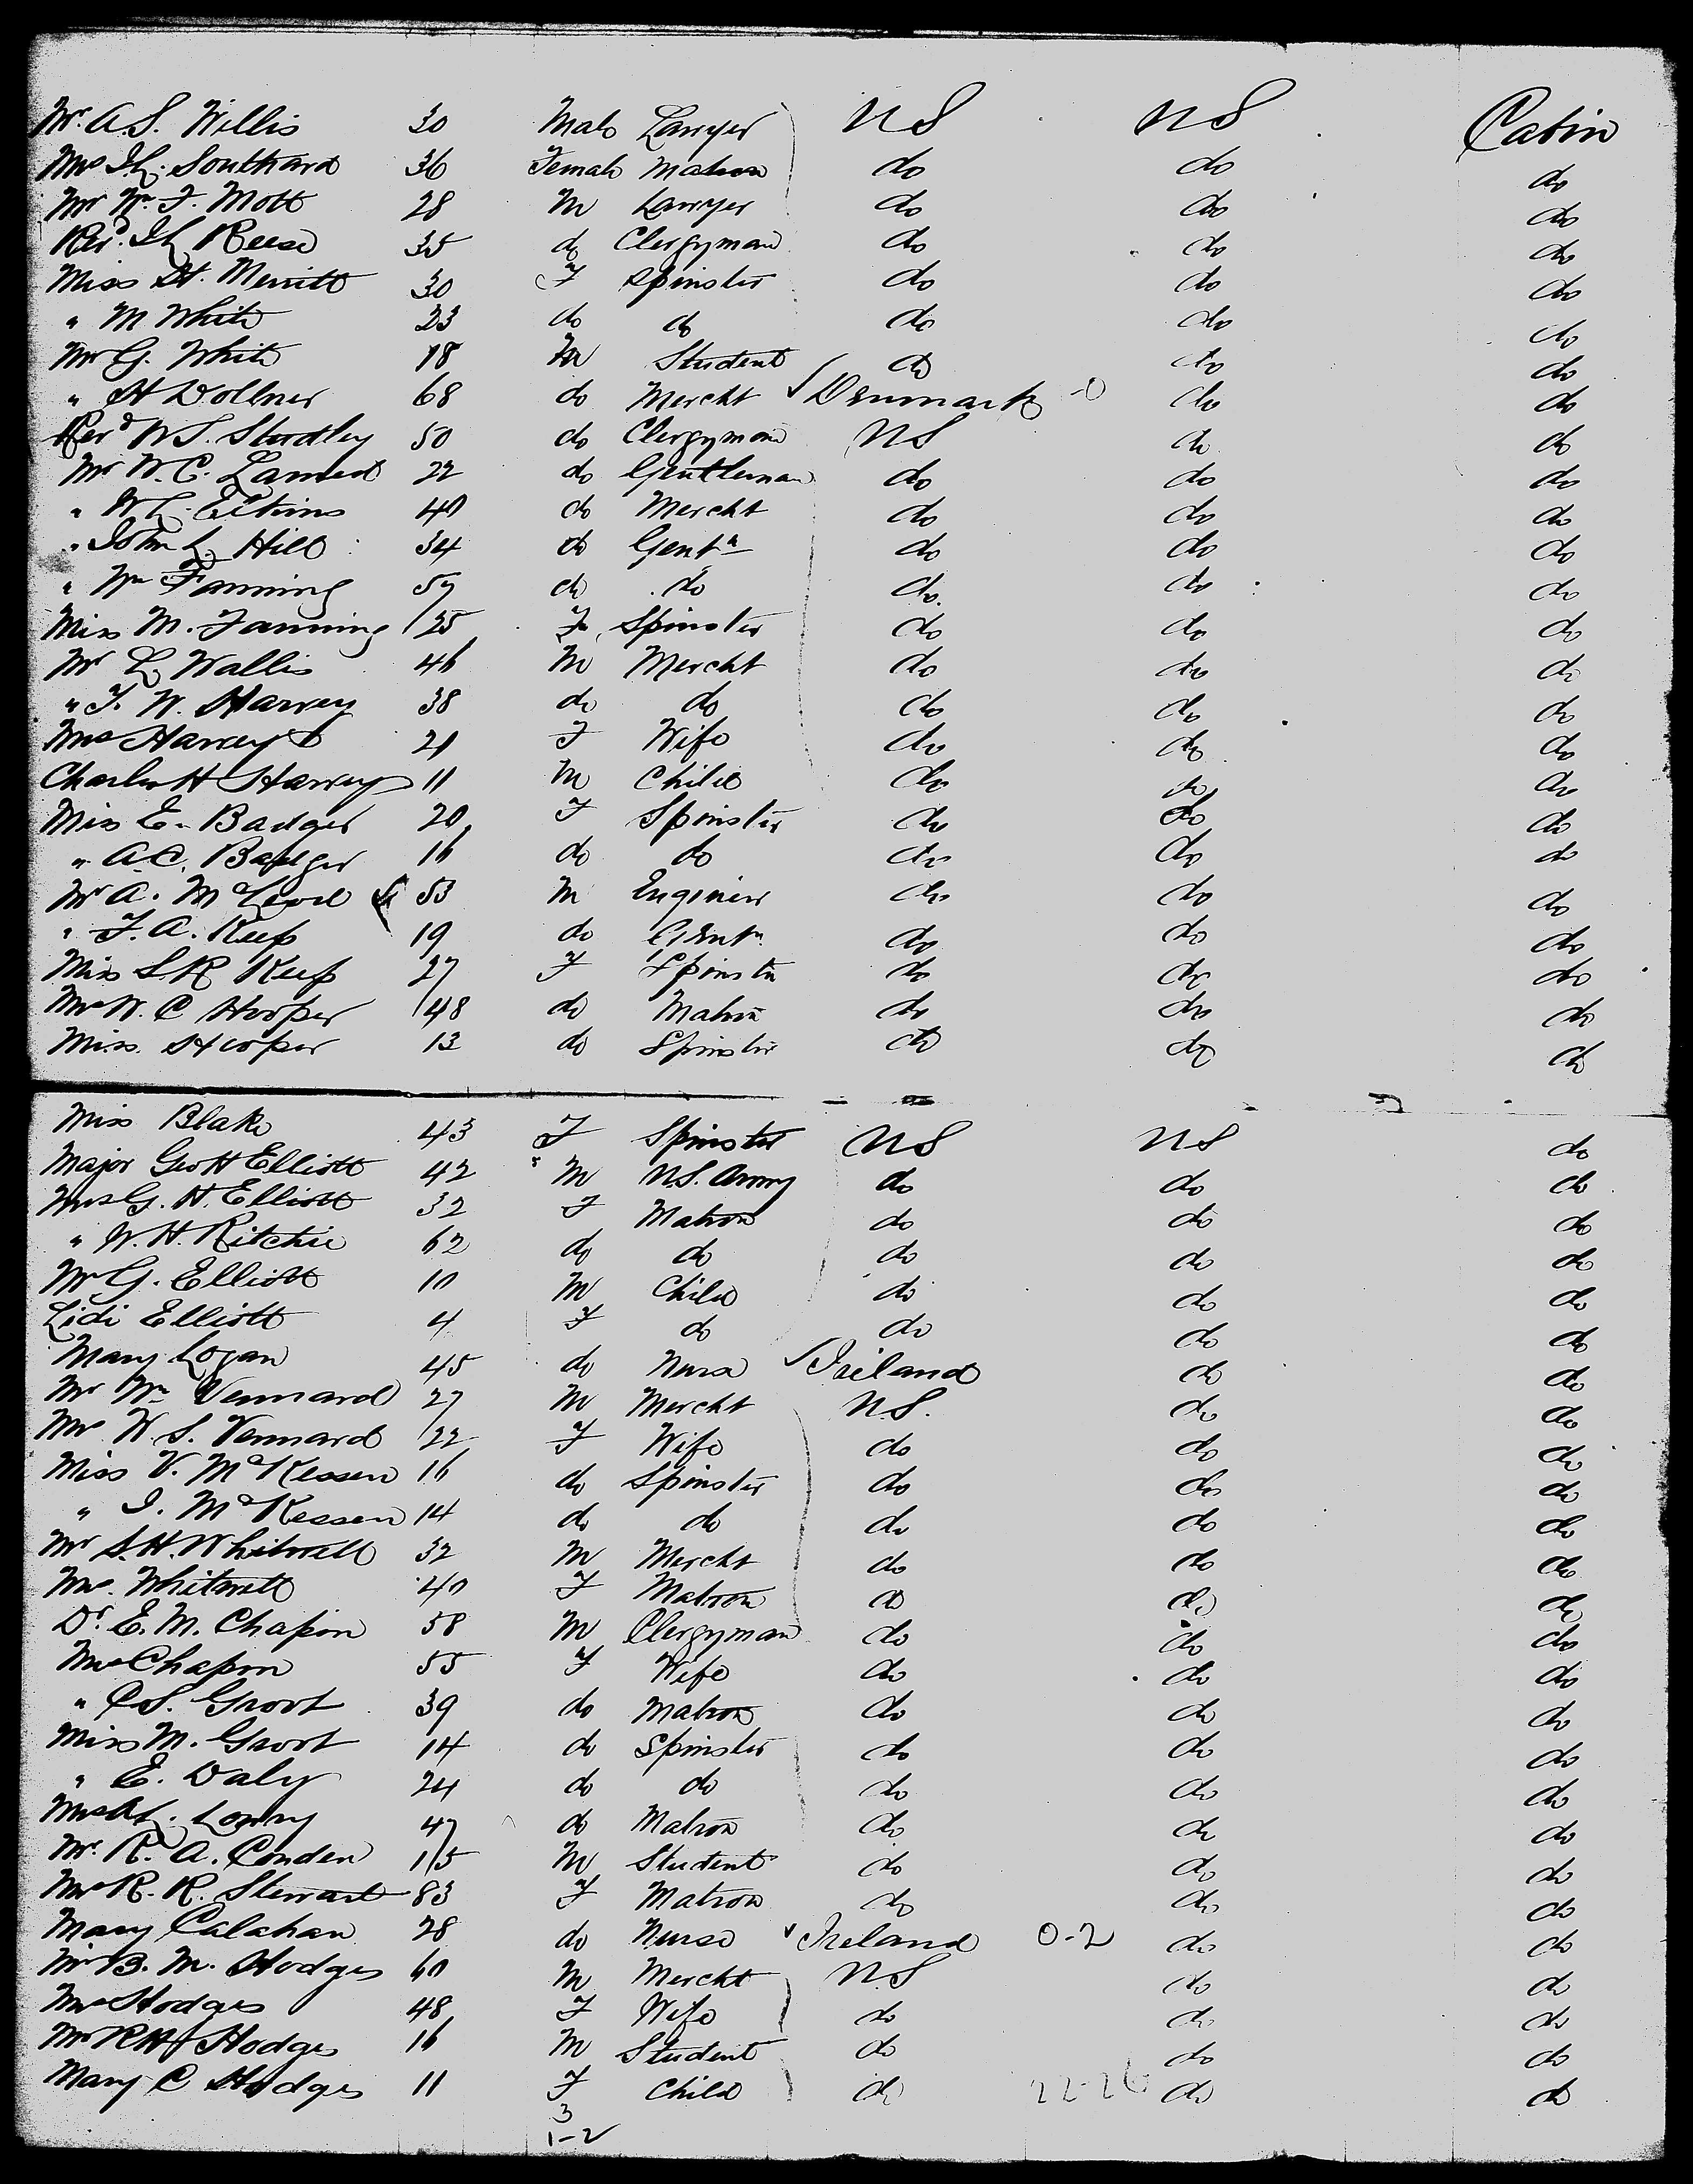 Mr. A. S. Willis 30 Male Lawyer U S U S Cabin
Mrs Southard 36 Female Matron do do do
Mr Wm F. Mott 28 M Lawyer do do do
Revd. Reese 35 do Clergyman do do do
Miss H. Merritt 30 F Spinster do do do
" M White 23 do do do do do
Mr G. White 18 M Student do do do
" H Dollner 68 do Mercht Denmark do do
Revd W S. Studley 50 do Clergyman U S do do
Mr W. C. Larned 22 do Gentleman do do do
" Elkins 40 do Mercht do do do
" John L. Hill 34 do Gentn do do do
" Wm Fanning 57 do do do do do
Miss M. Fanning 25 F Spinster do do do
Mr L. Wallis 46 M Mercht do do do
" F. W. Harvey 38 do do do do do
Mrs Harvey 21 F Wife do do do
Charles H Harvey 11 M Child do do do
Miss E. Badger 20 F Spinster do do do
" A. C. Badger 16 do do do do do
Mr A. McLeod 53 M Engineer do do do
" F. A. Keep 19 do Gentn do do do
Miss S. R Keep 27 F Spinster do do do
Mrs W. C Hooper 48 do Matron do do do
Miss. Hooper 13 do Spinster do do do
Miss Blake 43 F Spinster U S U S do
Major Geo H Elliott 42 M U.S. Army do do do
Mrs G. H. Elliott 32 F Matron do do do
" W. H. Ritchie 62 do do do do do
Mr G. Elliott 10 M Child do do do
Lidi Elliott 4 F do do do do
Mary Logan 45 do Nurse Ireland do do
Mr Wm Vennard 27 M Mercht U.S. do do
Mrs W. S. Vennard 22 F Wife do do do
Miss V. McKessen 16 do Spinster do do do
" I. McKessen 14 do do do do do
Mr S. H. Whitwell 32 M Mercht do do do
Mrs. Whitwell 40 F Matron do do do
Dr. E. M. Chapin 58 M Clergyman do do do
Mrs Chapin 55 F Wife do do do
" C S. Groot 39 do Matron do do do
Miss M. Groot 14 do Spinster do do do
" E. Daly 24 do do do do do
Mrs Lowry 47 do Matron do do do
Mr. R. A. Conden 15 M Student do do do
Mrs R. R. Stewart 83 F Matron do do do
Mary Calahan 28 do Nurse Ireland 0-2 do do
Mr B. M. Hodges 60 M Mercht U.S do do
Mrs Hodges 48 F Wife do do do
Mr R H Hodges 16 M Student do do do
Mary C Hodges 11 F Child do 22-26 do do
3
1-2